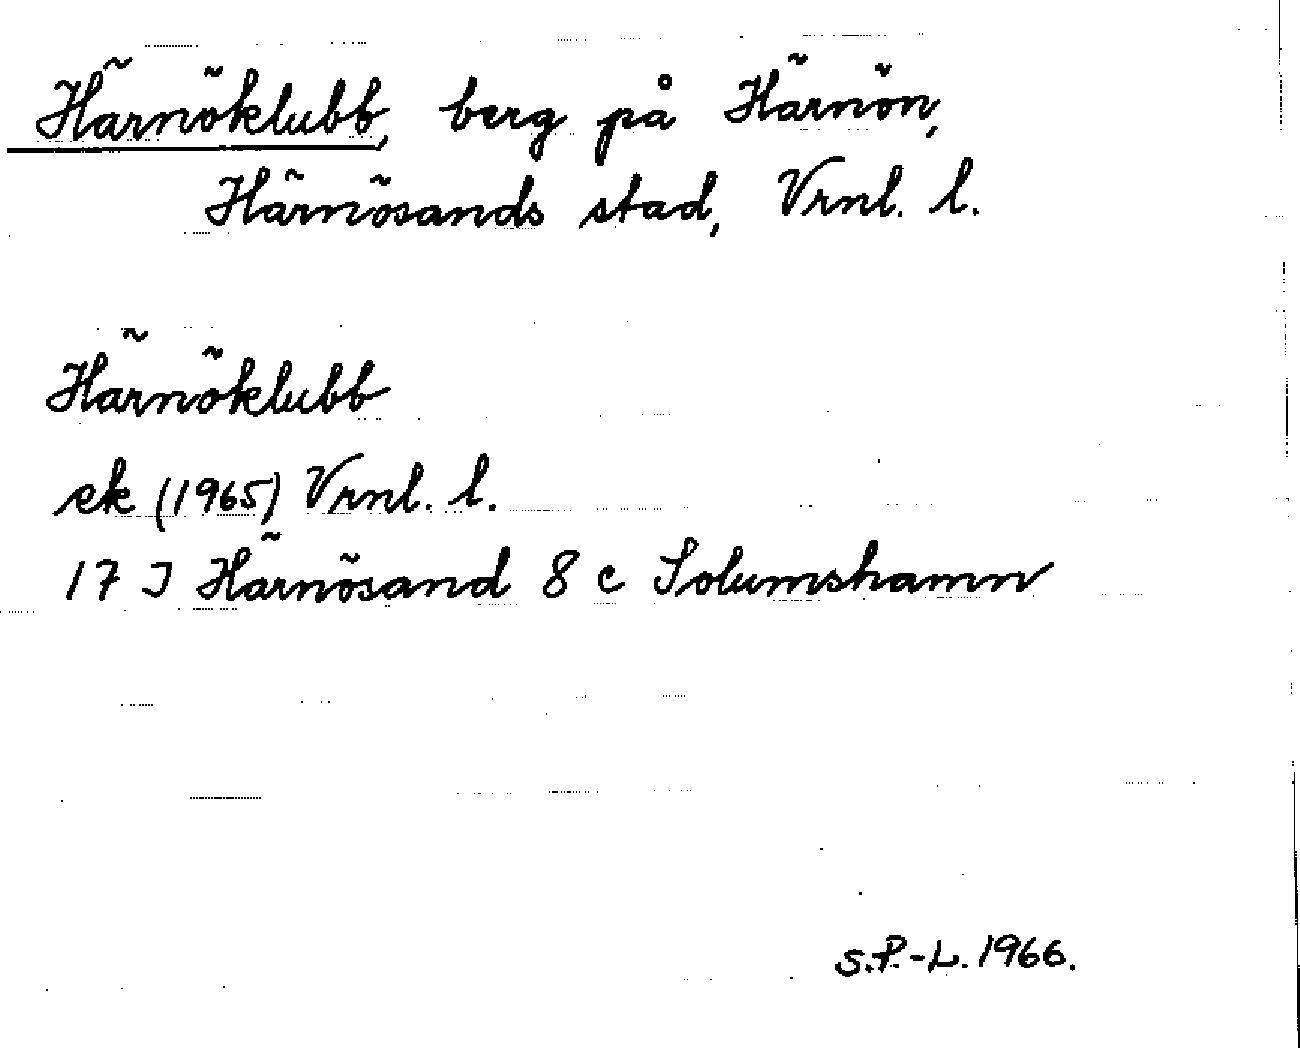 Härnöklubb, berg på Härnön,
Härnösands stad, Vrnl. l.
Härnöklubb
ek (1965) Vrnl. l.
17 J Härnösand 8 c Solumshamn
S.P.-L. 1966.